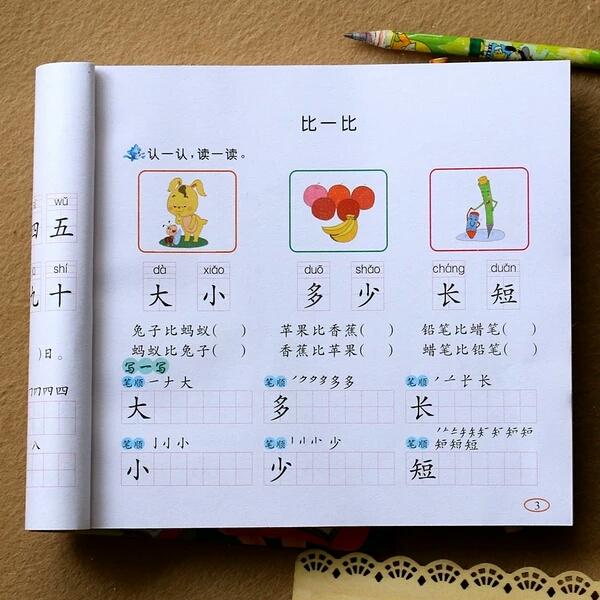 wǔ
四 五
shí
九 十
)日。
四
八
比一比
认一认,读一读。
dà xiǎo duō shǎo cháng duǎn
大 小 多 少 长 短
兔子比蚂蚁( ) 苹果比香蕉( ) 铅笔比蜡笔( )
蚂蚁比兔子( ) 香蕉比苹果( ) 蜡笔比铅笔( )
写一写
笔顺 一ナ大 笔顺 多 笔顺 长长
大 多 长
笔顺 亅小 笔顺 小少 笔顺 短短短
小 少 短
3